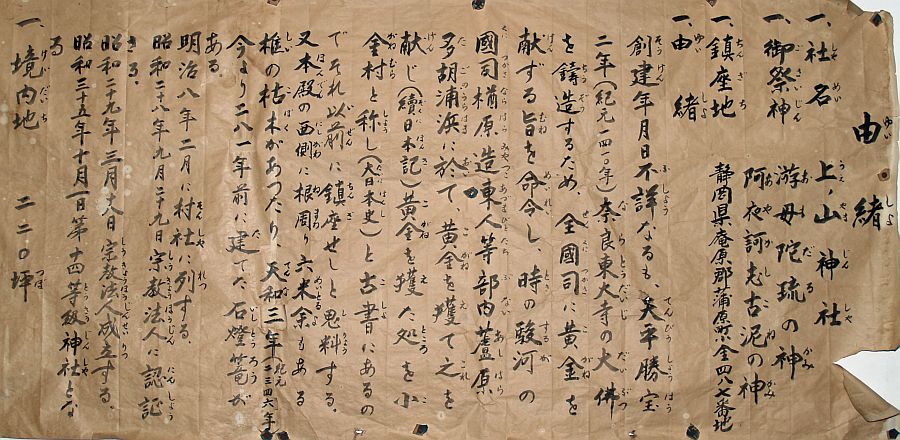 由緒
一、社名 上ノ山神社
一、御祭神 游母陀琉の神
阿夜訶志古泥の神
一、鎮座地 静岡県庵原郡蒲原町小金四八七番地
一、由緒
創建年月日不詳なるも、天平勝宝
二年(紀元一四一〇年)奈良東大寺の大佛
を鋳造するため、全國司に黄金を
献ずる旨を命令し、時の駿河の
國司楢原造東人等部内蘆原
多胡浦浜に於て黄金を獲て之を
献じ(續日本記)黄金を獲た処を小
金村と称し(大日本史)と古書にあるの
でそれ以前に鎮座せしと思料する。
又本殿の西側に根周り六米余もある
椎の枯木があつたり、天和三年(紀元二三四六年
今より二八一年前に建てた石燈篭が
ある
明治八年二月に村社に列する
昭和二八年九月二十九日宗教法人に認証
さる。
昭和二十九年三月十八日宗教法人成立する。
昭和三十五年十月一日第十四等級神社とな
る
一、境内地 二二〇坪